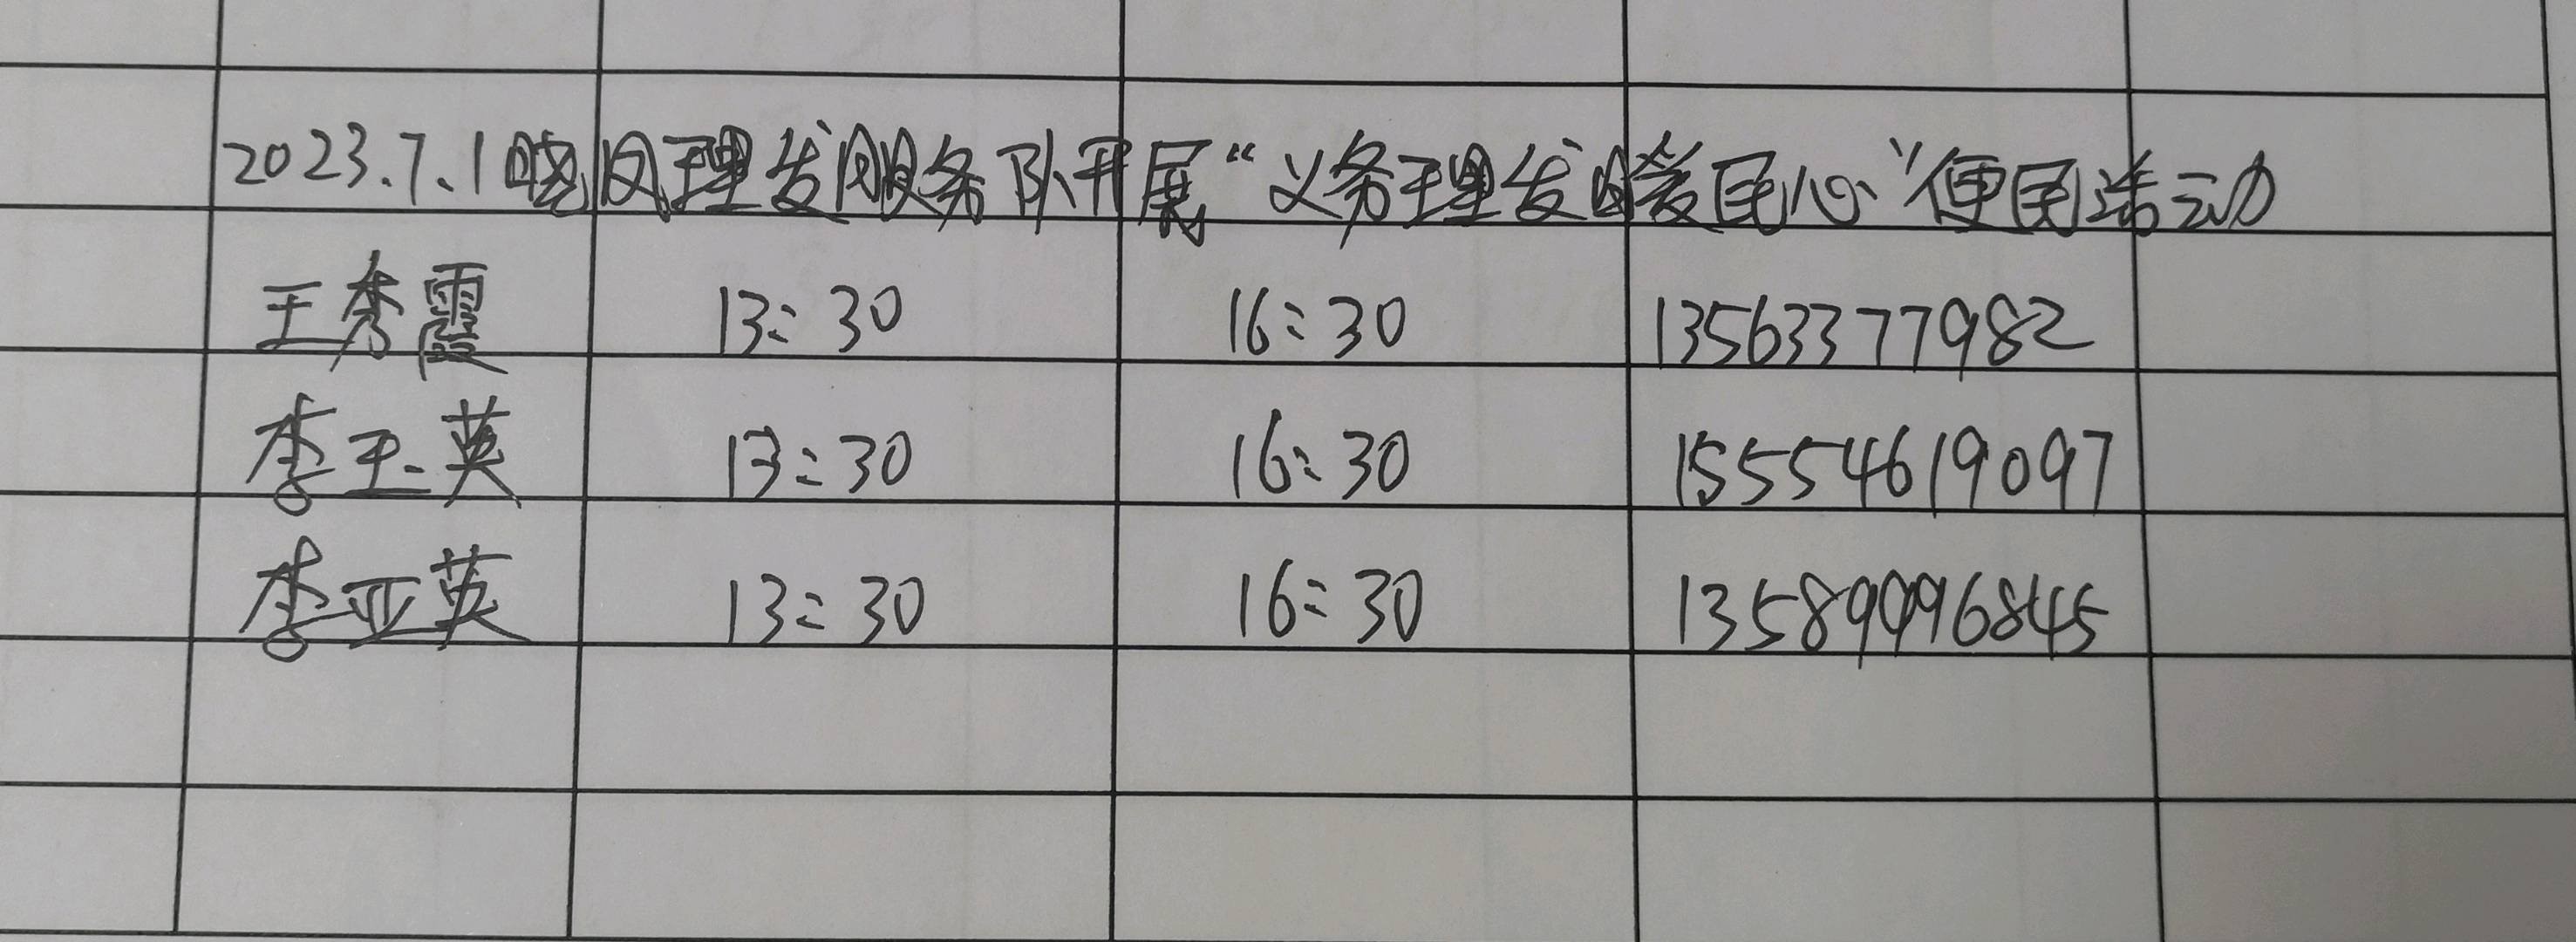 2023.7.1晓风理发服务队开展“义务理发暖民心”便民活动
王秀霞 13:30 16:30 13563377982
李玉英 13:30 16:30 15554619097
李亚英 13:30 16:30 13589996845